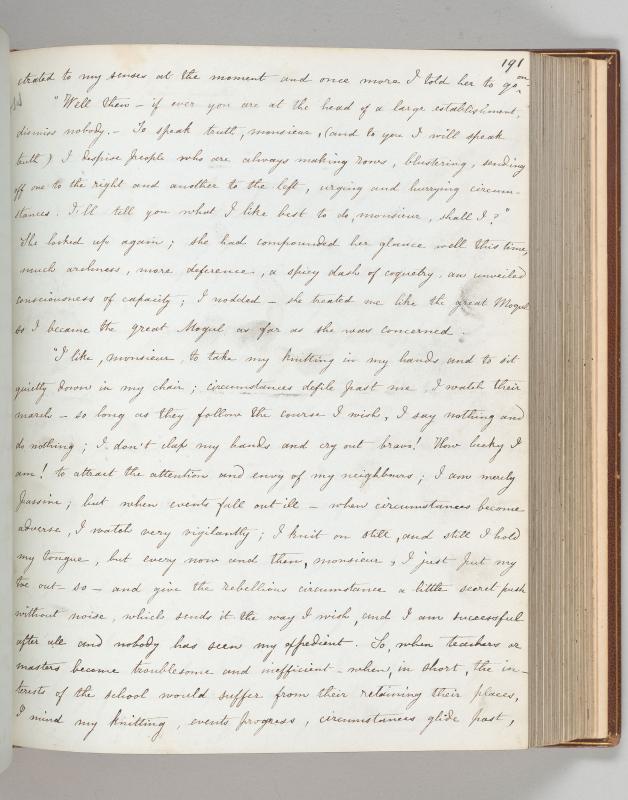 191
ctrated to my senses at the moment and once more I told her to go on
"Well then – if ever you are at the head of a large establishment,
dismiss nobody. – To speak truth, monsieur, (and to you I will speak
truth) I despise people who are always making rows, blustering, sending
off one to the right and another to the left, urging and hurrying circum-
stances. I'll tell you what I like best to do, monsieur, shall I?"
She looked up again; she had compounded her glance well this time,
much archness, more deference, a spicy dash of coquetry, an unveiled
consciousness of capacity; I nodded – she treated me like the great Mogul
so I became the great Mogul as far as she was concerned.
"I like, monsieur, to take my knitting in my hands and to sit
quietly down in my chair; circumstances defile past me, I watch their
march – so long as they follow the course I wish, I say nothing and
do nothing; I don't clap my hands and cry out bravo! How lucky I
am! to attract the attention and envy of my neighbours; I am merely
passive; but when events fall out ill – when circumstances become
adverse, I watch very vigilantly; I knit on still, and still I hold
my tongue, but every now and then, monsieur, I just put my
toe out – so – and give the rebellious circumstance a little secret push
without noise, which sends it the way I wish, and I am successful
after all and nobody has seen my expedient. So, when teachers or
masters become troublesome and inefficient – when, in short, the in-
terests of the school would suffer from their retaining their places,
I mind my knitting, events progress, circumstances glide past,